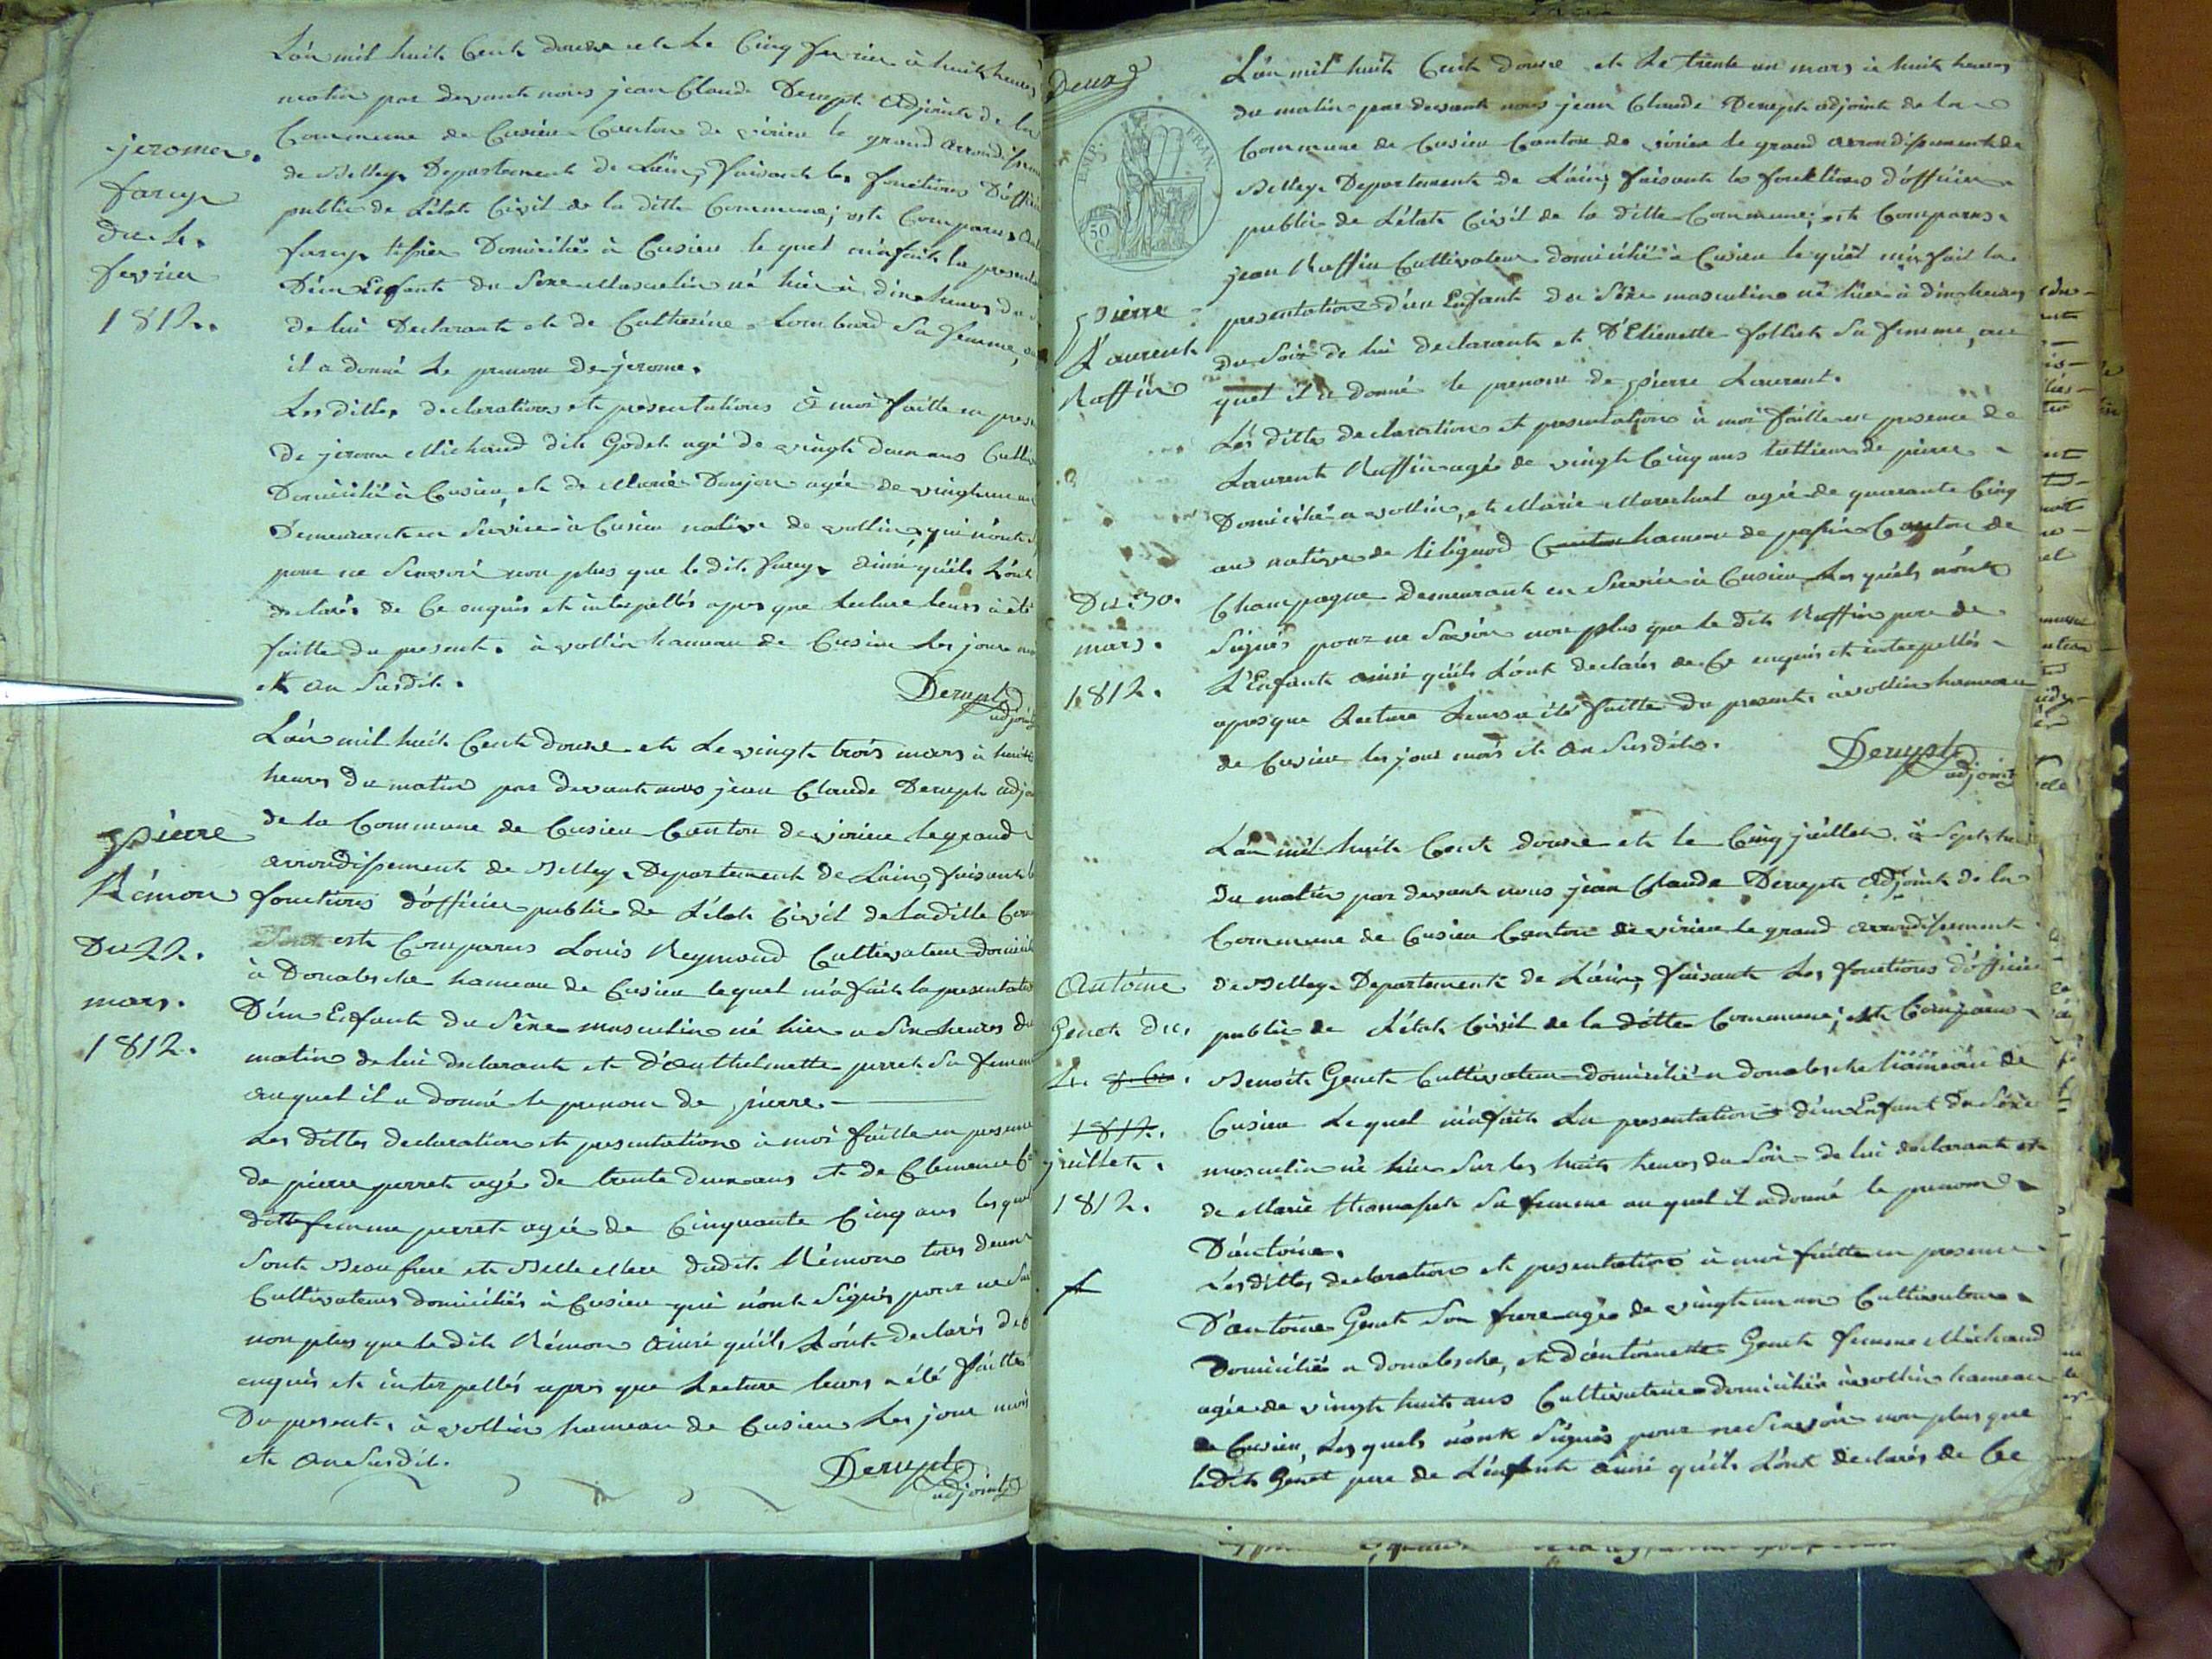 L'an mil huit Cent douze et le Cinq fevrier à huit heures
matin par devant nous jean Claude Derupt Adjoint de la
Commune de Cusieu Canton de virieu le grand arrondissem
de Belley Departement de L'ain, faisant les fonctions D'offici
public de L'etat Civil de la ditte Commune; est Comparu
farcy tissier Domicilié à Cusieu le quel m'a fait la present
D'un Enfant du Sexe Masculin né hier à dix heures du
de lui Declarant et de Catherine Lombard Sa femme,
il a donné le prenom de jerome.
Les dittes declarations et présentations à moi faitte en pres
De jerome Michaud dit Godet agé de vingt deux ans Cultiv
Domicilié à Cusieu, et de Marie Donjon agée de vingt un an
Demeurant en Service à Cusieu native de vollin, qui n'ont
pour ne Scavoir non plus que le dit farcy ainsi qu'ils L'ont
declarés de Ce enquis et interpellés apres que Lecture leurs a été
faitte du present. à vollin hameau de Cusieu les jour
et an Susdit.
Derupt
adjoint
jerome
farcy
du 4.
fevrier
1812.
L'an mil huit Cent douze et le vingt trois mars à huit
heures Du matin par devant nous jean Claude Derupt adjo
de la Commune de Cusieu Canton de virieu le grand
arrondissement de Belley Departement de Lain, faisant l
fonctions d'officier public de L'etat Civil de la ditte Com
est Comparus Louis Reymond Cultivateur domicil
à Donalesche hameau de Cusieu lequel m'a fait la presentatio
D'un Enfant du Sexe masculin né hier a Six heures du
matin de lui declarant et d'anthelmette perret Sa femm
auquel il a donné le prenom de pierre.
Les dittes declaration et presentation à moi faitte en presence
de pierre perret agé de trente deux ans et de Clemence
ditte femme perret agée de Cinquante Cinq ans les quel
Sont Beau frere et Belle Mere dudit Rémon tous deux
Cultivateurs domiciliés à Cusieu qui n'ont Signés pour ne
non plus que le dit Rémon ainsi qu'ils L'ont declarés de
enquis et interpellés apres que Lecture leurs a été faitte
Du present. à vollin hameau de Cusieu les jour mois
et an Susdit.
Derupt
adjoint
pierre
Rémon
Du 22.
mars.
1812.
Deux
EMP. FRAN.
50
C
L'an mil huit Cent douze et le trente un mars à huit heures
du matin par devant nous jean Claude Derupt adjoint de la
Commune de Cusieu Canton de virieu le grand arrondissement de
Belley Departement de L'ain, faisant les fonctions d'officier
public de L'etat Civil de la ditte Commune; est Comparus
jean Ruffin Cultivateur domicilié à Cusieu le quel m'a fait la
presentation d'un Enfant du Sexe masculin né hier à dix heures
du Soir de lui declarant et D'Etienette folliet Sa femme, au
quel il a donné le prenom de pierre Laurent.
Les dittes declaration et presentation à moi faitte en presence de
Laurent Ruffin agé de vingt Cinq ans tallieur de pierre
Domicilié a vollin, et Marie Marechal agée de quarante Cinq
ans native de Lilignod hameau de passin Canton de
Champagne Demeurant en Service à Cusieu Les quels n'ont
Signés pour ne Savoir non plus que le dit Ruffin pere de
L'Enfant ainsi qu'ils L'ont declarés de Ce enquis et interpellés
apres que Lecture Leurs a été faitte du present. à vollin hameau
de Cusieu les jour mois et an Susdits.
Derupt
adjoint
pierre
Laurent
Ruffin
Du 30.
mars.
1812.
L'an mil huit Cent douze et le Cinq juillet à Sept heu
du matin par devant nous jean Claude Derupt Adjoint de la
Commune de Cusieu Canton de virieu le grand arrondissement
de Belley Departement de L'ain, faisant Les fonctions d'officier
public de L'etat Civil de la ditte Commune; est Comparu
Benoit Genet Cultivateur domicilié a donalesche hameau de
Cusieu Lequel m'a fait La presentation d'un Enfant Du Sexe
masculin né hier Sur les huit heures du Soir de lui declarant et
de Marie Thomasset Sa femme au quel il a donné le prenom
D'antoine.
Les dittes declaration et presentation à moi faitte en presence
D'antoine Genet Son frere agé de vingt un ans Cultivateur
Domicilié a donalesche, et d'antoinette Genet femme Michaud
agée de vingt huit ans Cultivatrice domiciliée à vollin hameau
de Cusieu, Les quels n'ont Signés pour ne Scavoir non plus que
ledit Genet pere de L'enfant ainsi qu'ils L'ont declarés de Ce
Antoine
Genet du
4.
1812.
juillet.
1812.